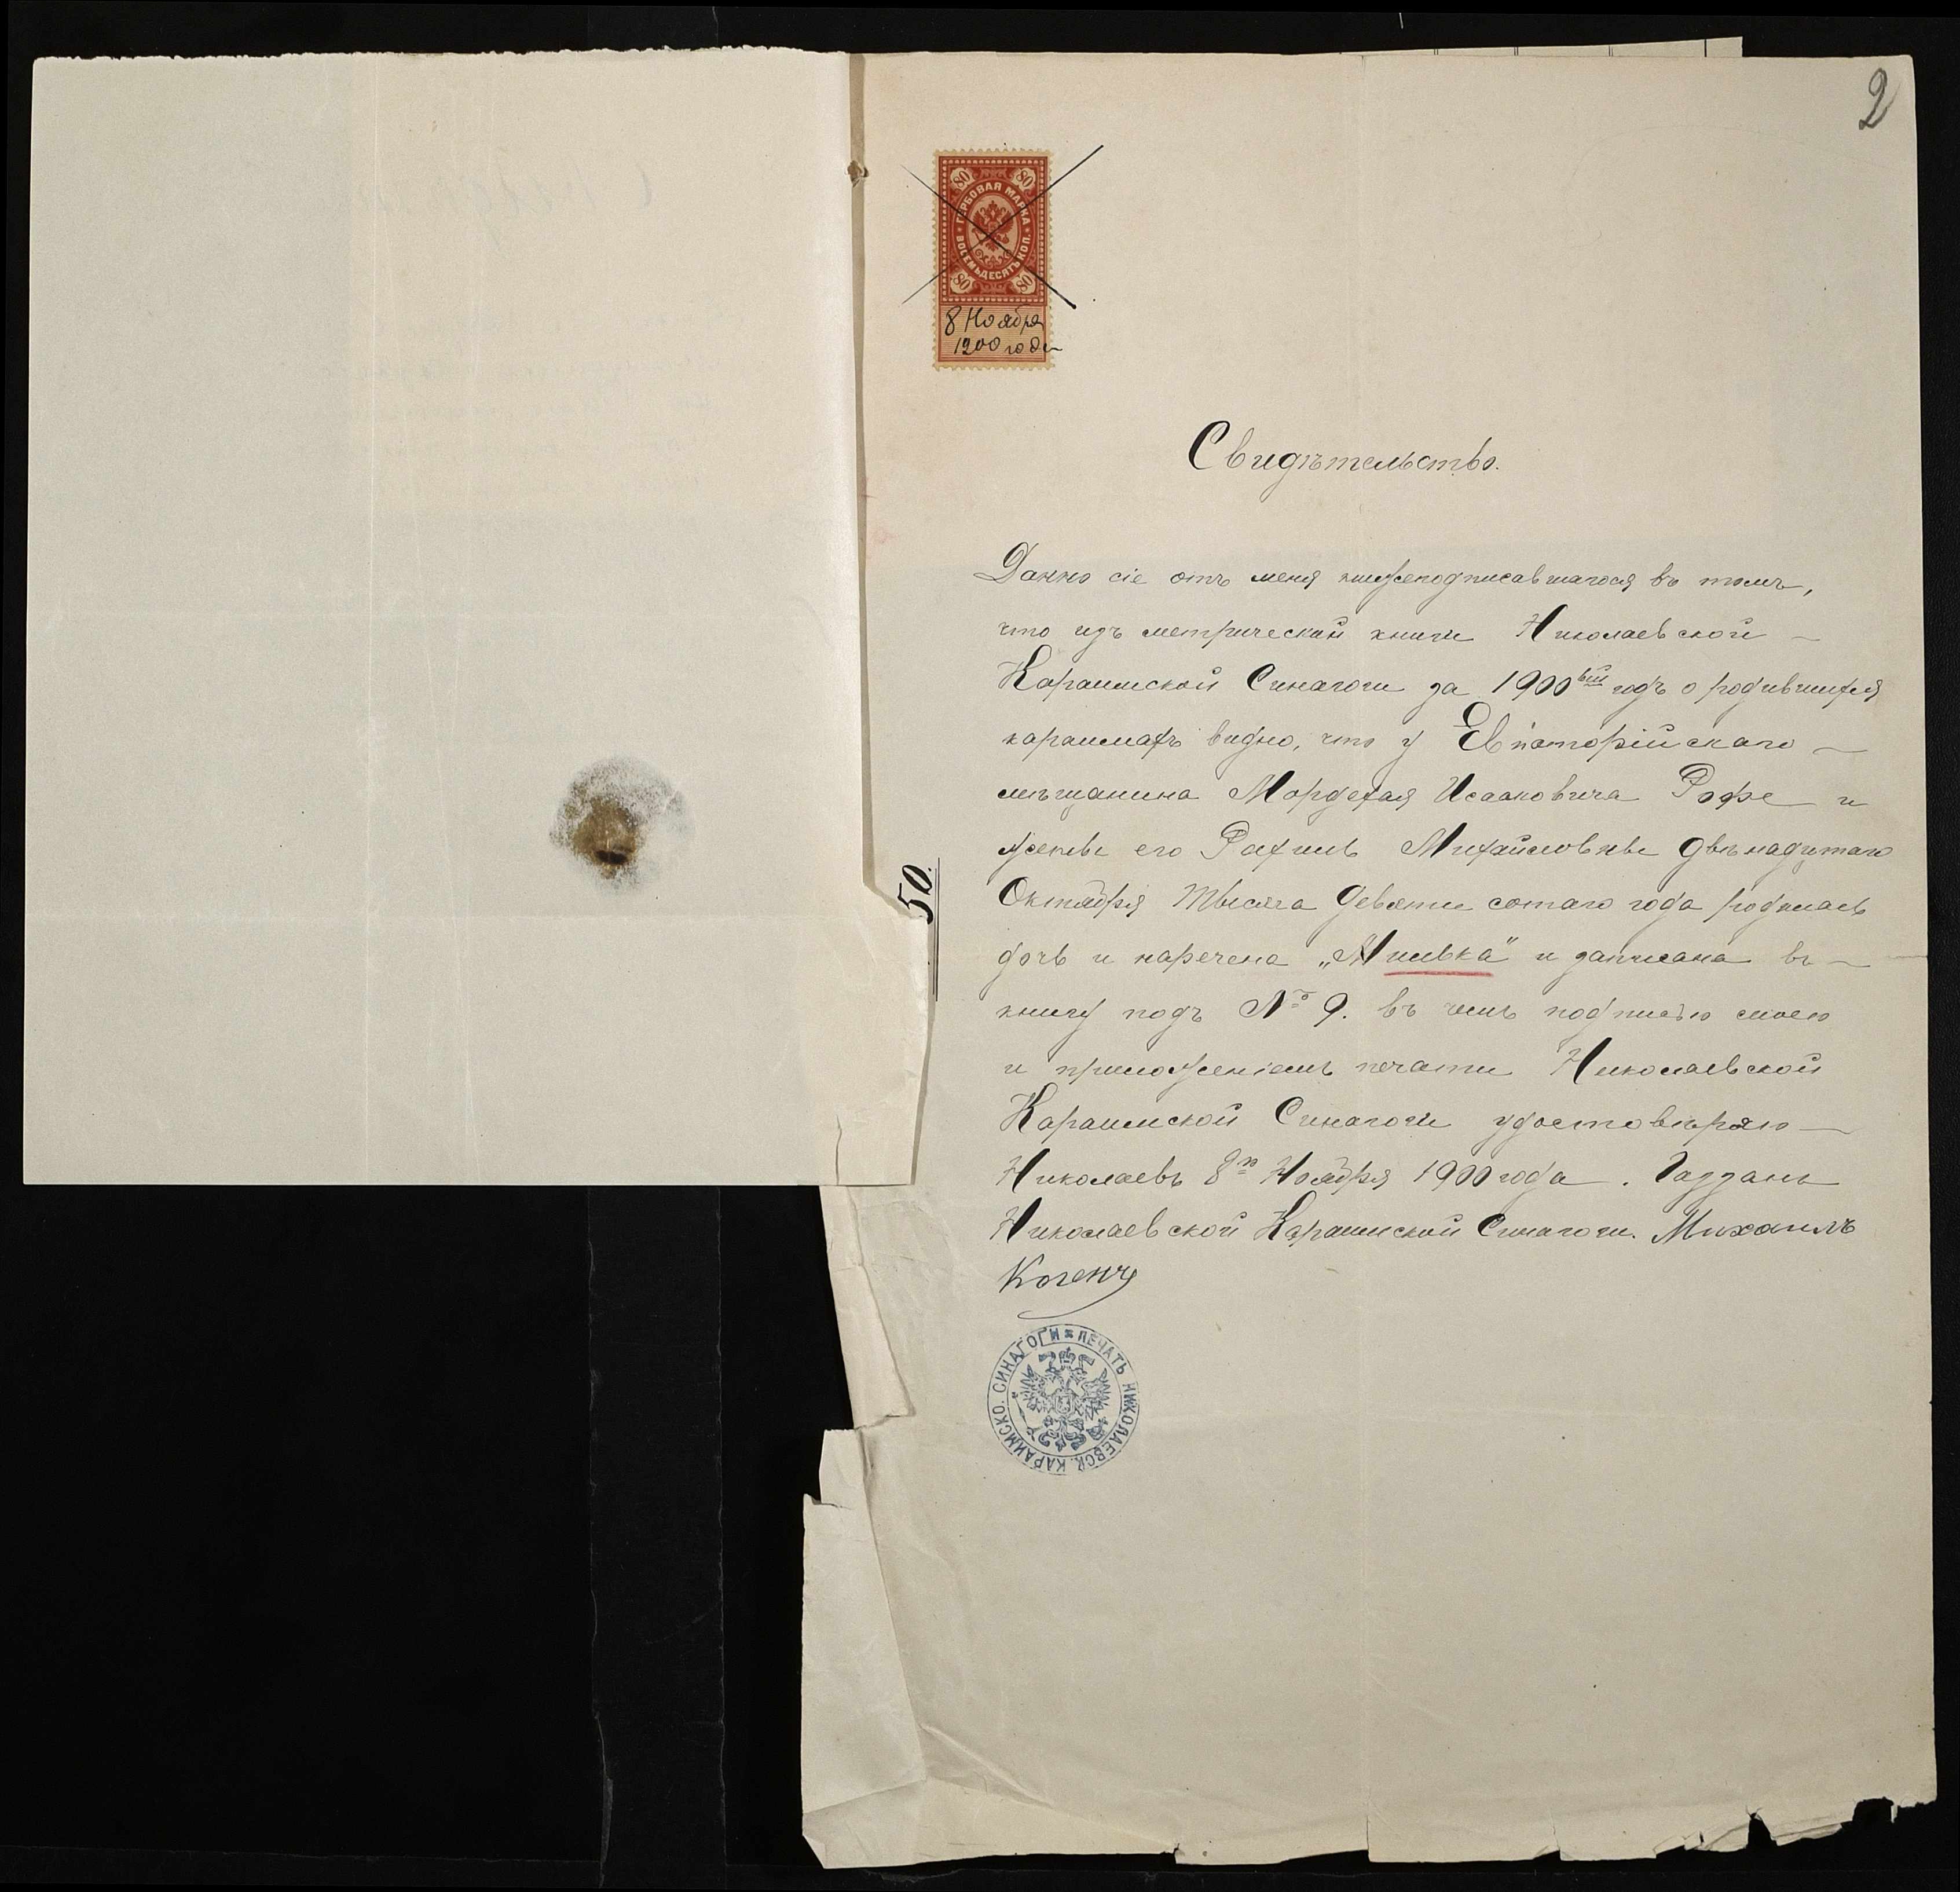 2
80 80
ГЕРБОВАЯ МАРКА
ВОСЕМЬДЕСЯТЪ КОП.
80 80
8 Ноября
1900 года
Свидѣтельство.
Данно сіе отъ меня нижеподписавшагося въ томъ,
что изъ метрической книги Николаевской
Караимской Синагоги за 1900ый годъ о родившихся
караимахъ видно, что у Евпаторійскаго
мѣщанина Мордехая Исааковича Рофе и
жены его Рахиль Михайловны двѣнадцатаго
Октября Тысяча девяти сотаго года родилась
дочь и наречена „Милька" и записана въ
книгу подъ № 9. въ чемъ подписью моею
и приложеніемъ печати Николаевской
Караимской Синагоги удостовѣряю
Николаевъ 8го Ноября 1900 года. Газзанъ
Николаевской Караимской Синагоги. Михаилъ
Когенъ
50.
ПЕЧАТЬ НИКОЛАЕВСК. КАРАИМСКО. СИНАГОГИ